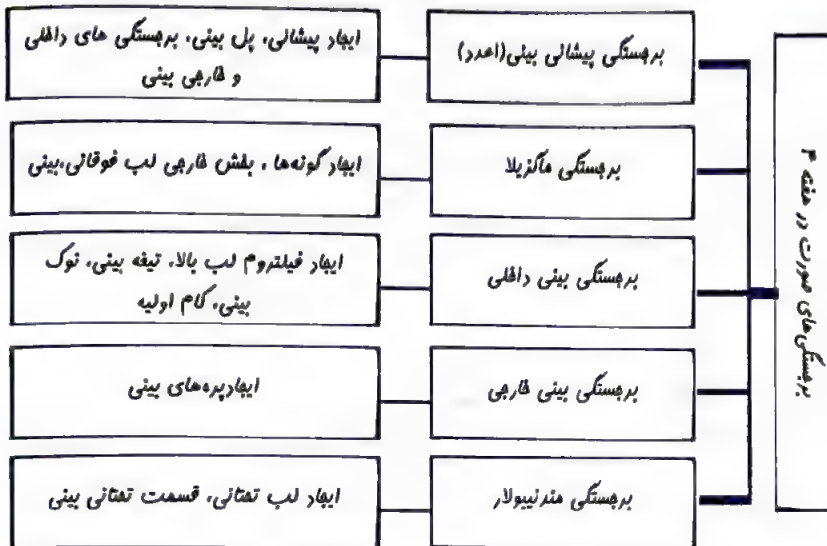 برجستگی‌های صورت در هفته ۴
برجستگی پیشانی بینی(اعدد)
ایجاد پیشانی، پل بینی، برجستگی های داخلی
و خارجی بینی
برجستگی ماگزیلا
ایجاد گونه‌ها ، بخش خارجی لب فوقانی،بینی
برجستگی بینی داخلی
ایجاد فیلتروم لب بالا، تیغه بینی، نوک
بینی، کام اولیه
برجستگی بینی خارجی
ایجادپره‌های بینی
برجستگی مندنیبولار
ایجاد لب تحتانی، قسمت تحتانی بینی